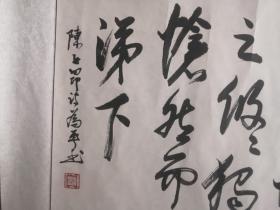 之悠々獨
愴然而
涕下
陳子昂詩為平書